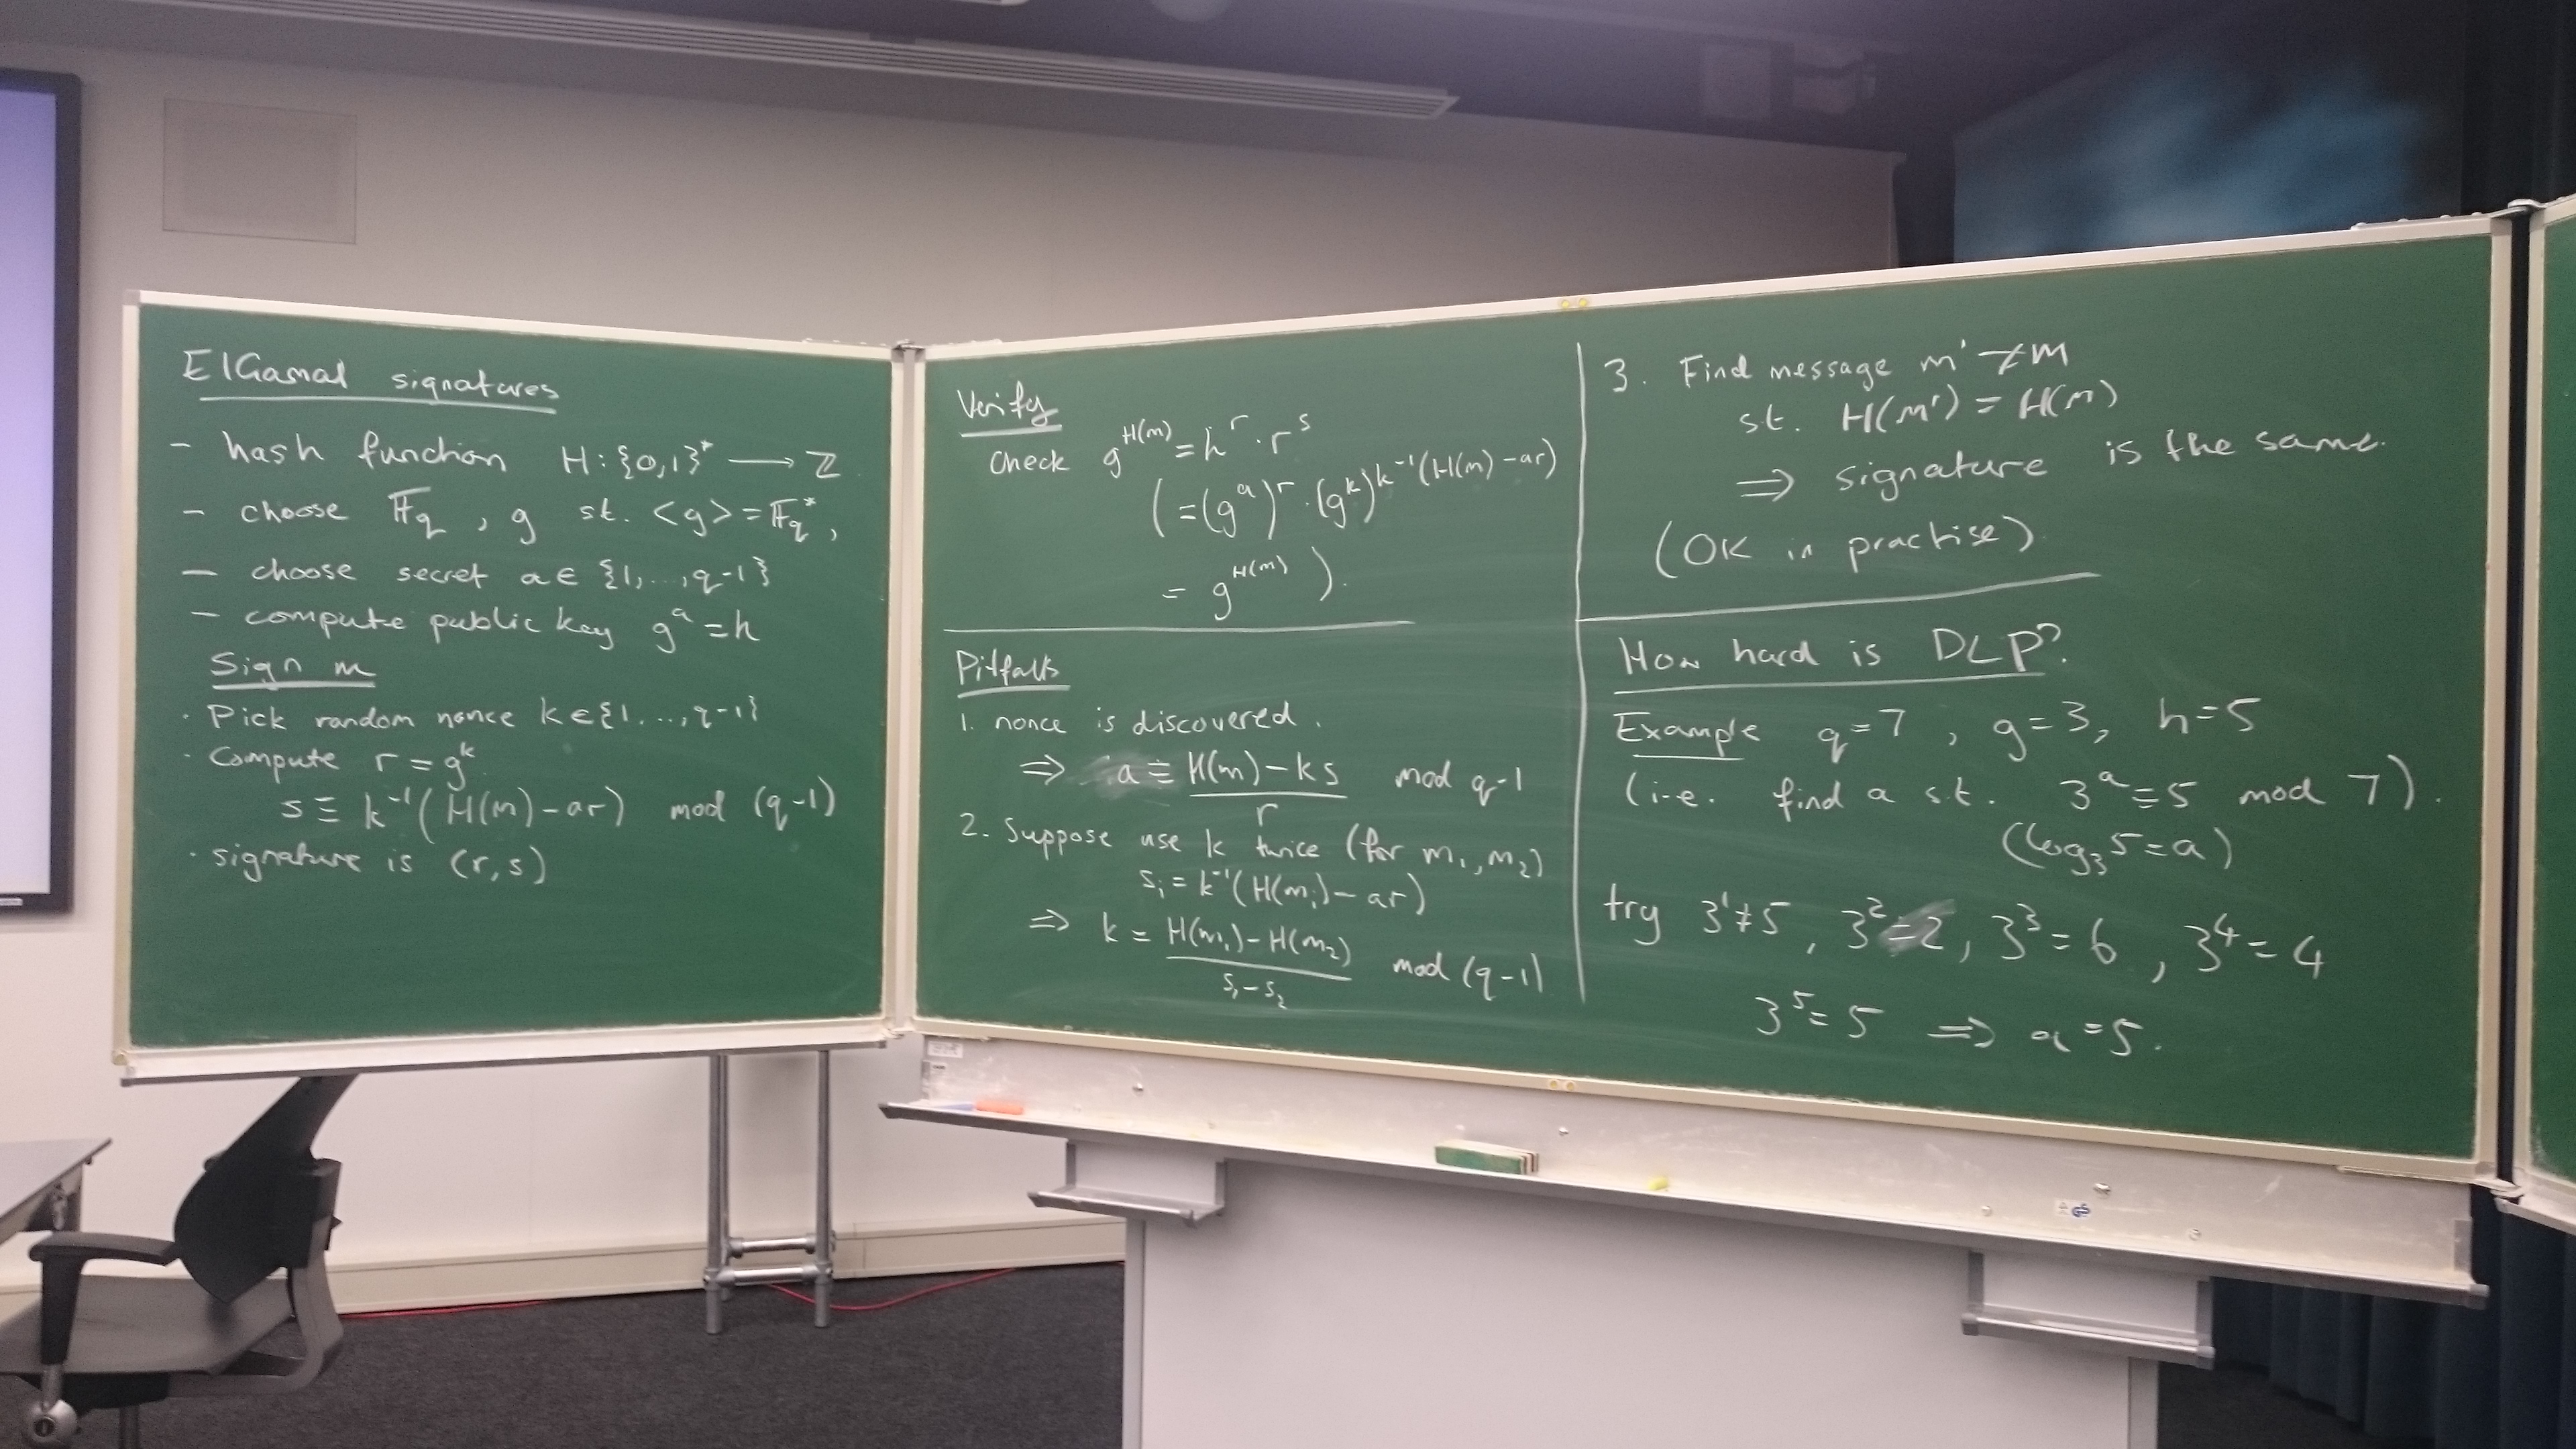 ElGamal signatures
- hash function H: {0,1}* → ℤ
- choose 𝔽q, g st. <g> = 𝔽q*,
- choose secret a ∈ {1,...,q-1}
- compute public key g^a = h
Sign m
· Pick random nonce k ∈ {1...,q-1}
· Compute r = g^k
s ≡ k^-1 (H(m) - ar) mod (q-1)
· signature is (r,s)
Verify
Check g^H(m) = h^r · r^s
( = (g^a)^r · (g^k)^k^-1(H(m) - ar)
= g^H(m) ).
Pitfalls
1. nonce is discovered.
⇒ a ≡ (H(m) - ks)/r mod q-1
2. Suppose use k twice (for m₁, m₂)
sᵢ = k^-1 (H(mᵢ) - ar)
⇒ k = (H(m₁) - H(m₂))/(s₁ - s₂) mod (q-1)
3. Find message m' ≠ m
st. H(m') = H(m)
⇒ signature is the same.
(OK in practise)
How hard is DLP?
Example q=7, g=3, h=5
(i.e. find a s.t. 3^a ≡ 5 mod 7).
(log₃5 = a)
try 3^1 ≠ 5, 3^2 = 2, 3^3 = 6, 3^4 = 4
3^5 = 5 ⇒ a = 5.